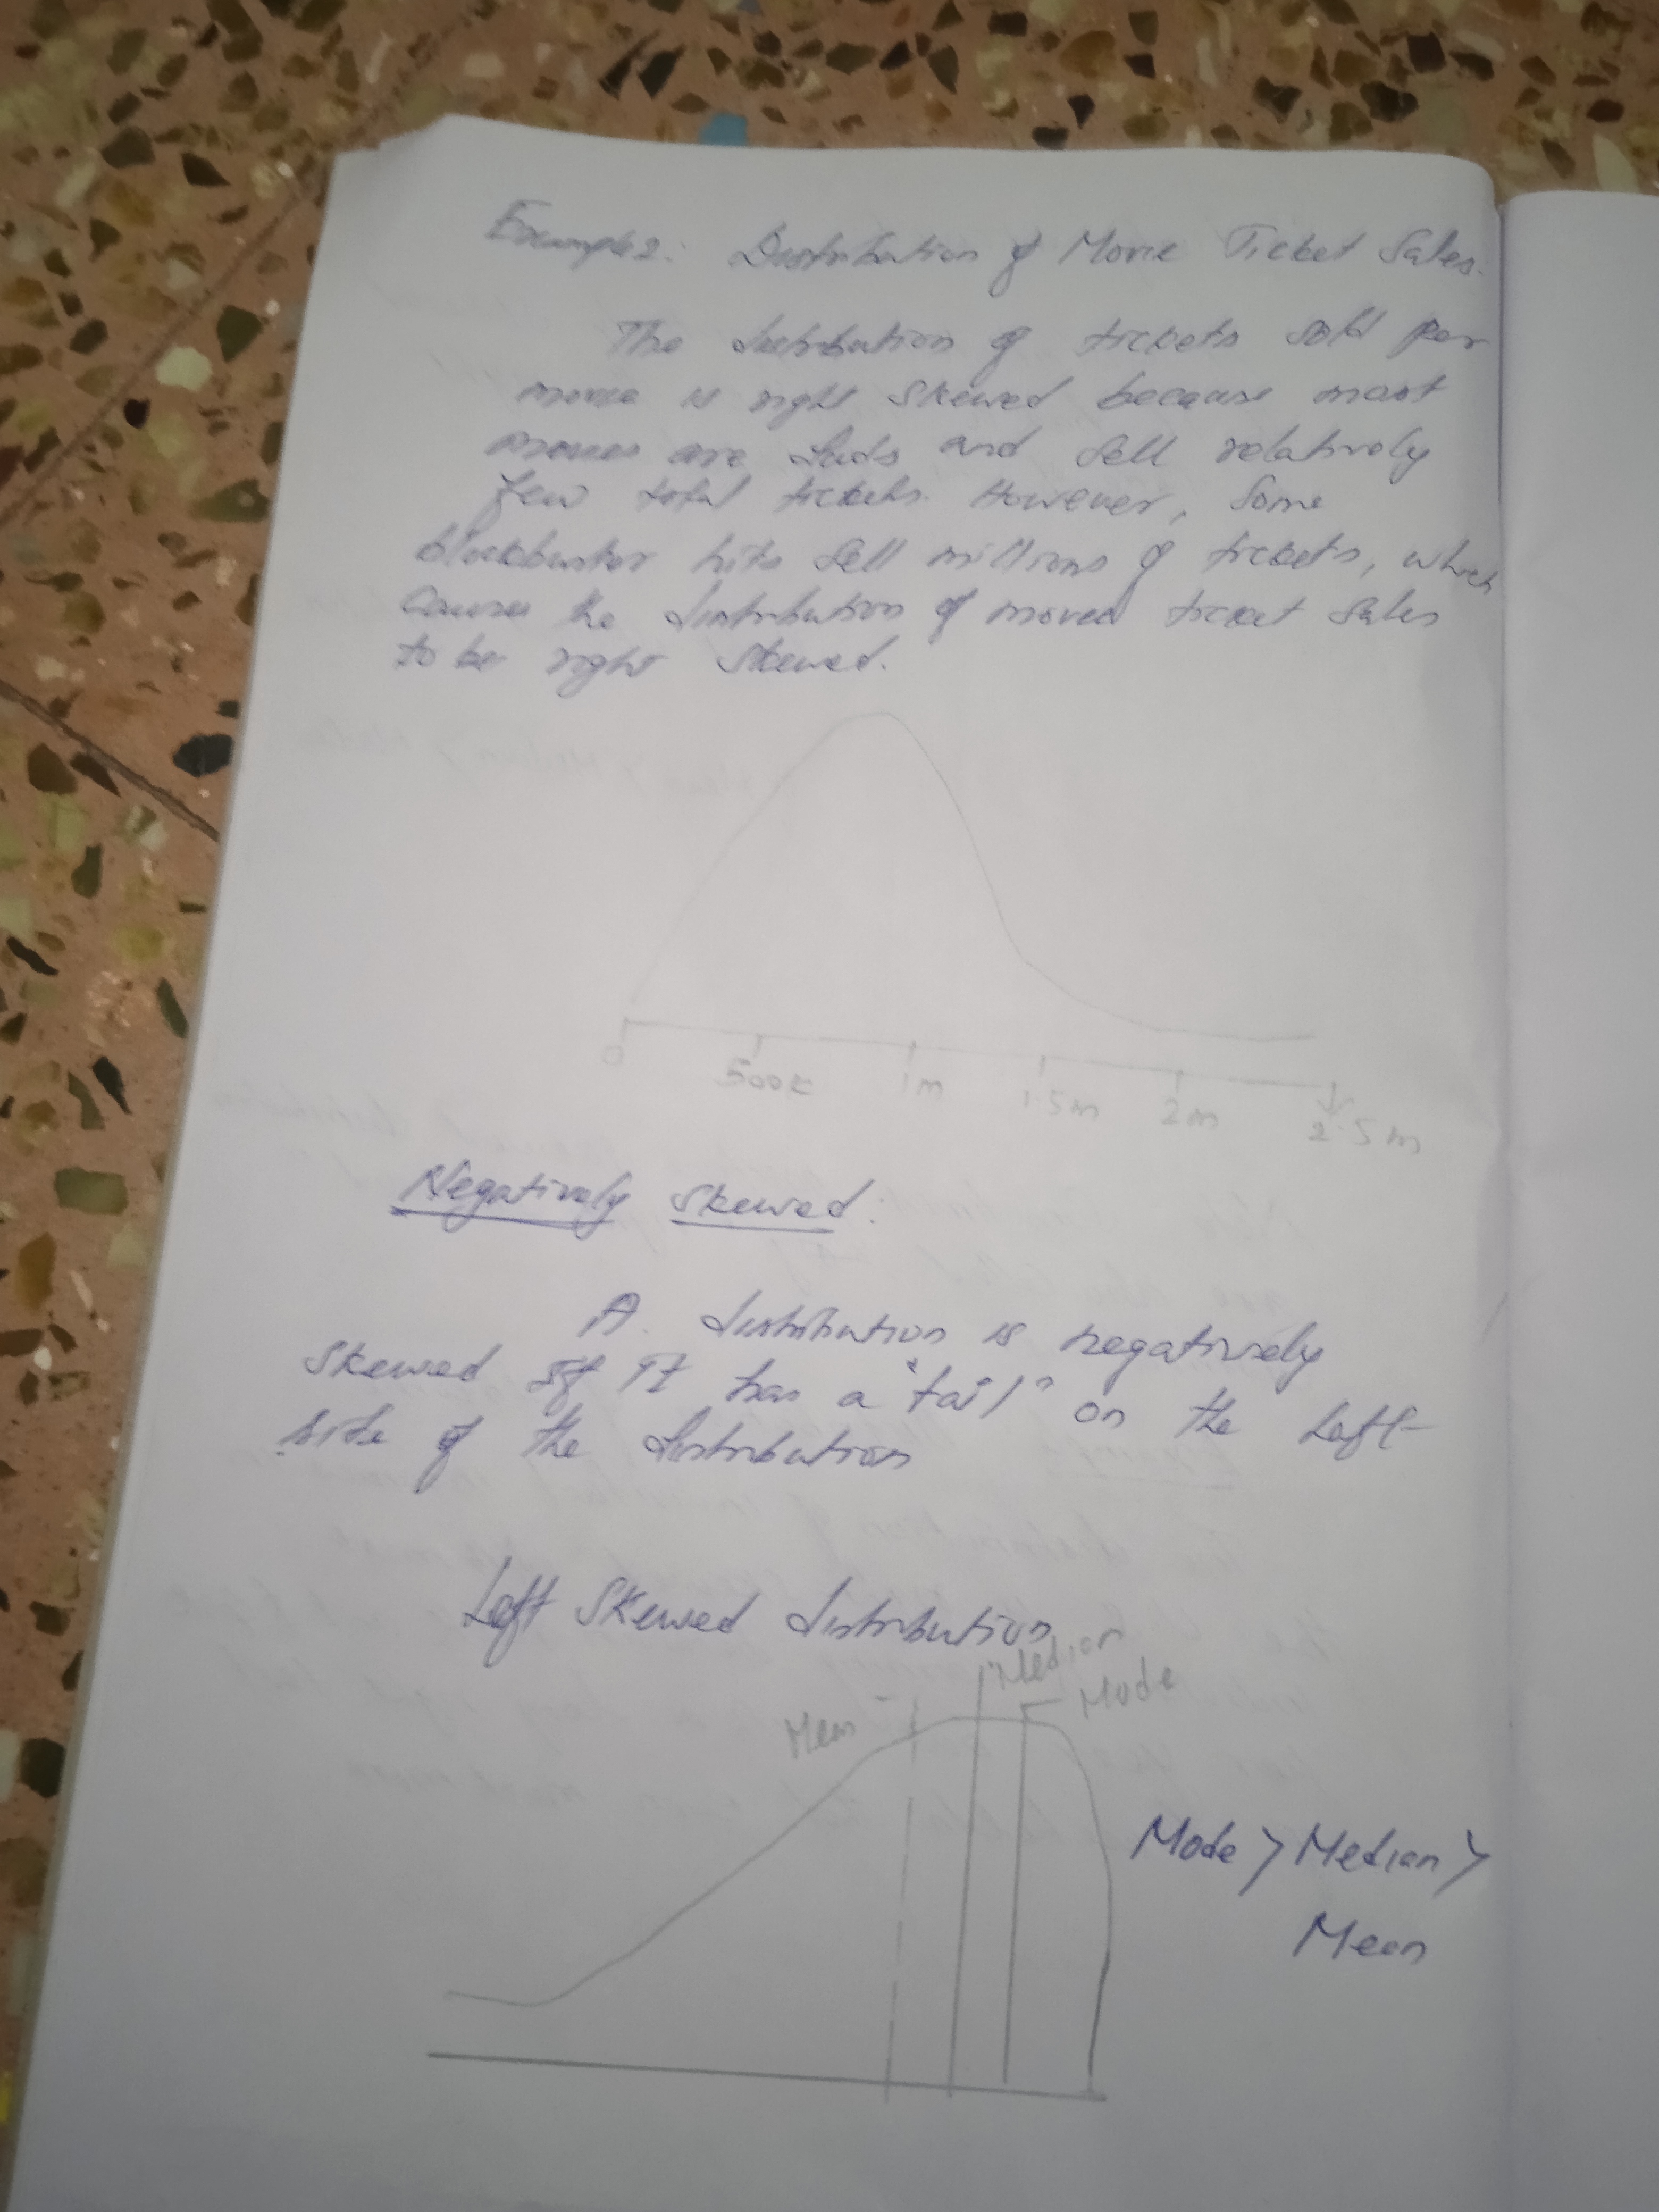 Example 2: Distribution of Movie Ticket Sales.
The distribution of tickets sold per
movie is right skewed because most
movies are duds and sell relatively
few total tickets. However, some
blockbuster hits sell millions of tickets, which
causes the distribution of movea ticket sales
to be right skewed.
0 500k 1m 1.5m 2m 2.5m
Negatively Skewed:
A distribution is negatively
skewed if it has a "tail" on the left
side of the distribution
Left Skewed distribution
Median
Mean Mode
Mode > Median >
Mean